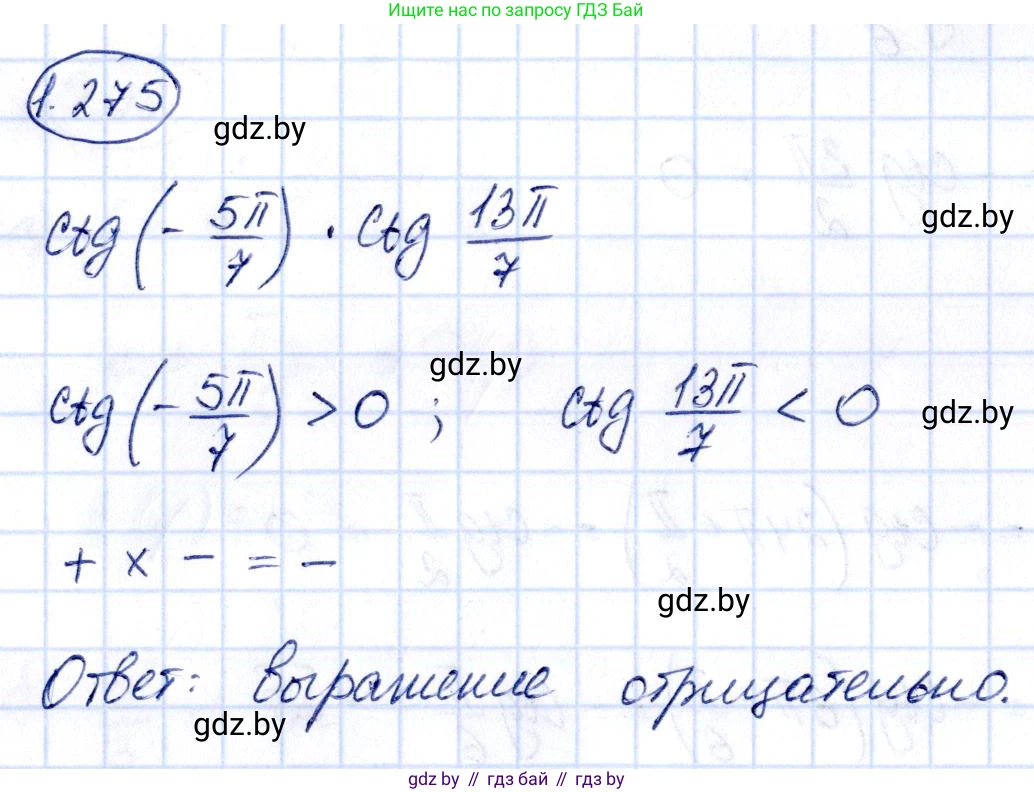 Ищите нас по запросу ГДЗ Бай
1.275
gdz.by
ctg(-5π/7) · ctg 13π/7
gdz.by
gdz.by
ctg(-5π/7) > 0 ; ctg 13π/7 < 0
gdz.by
+ × - = -
gdz.by
Ответ: выражение отрицательно.
gdz.by
gdz.by // гдз бай // gdz.by